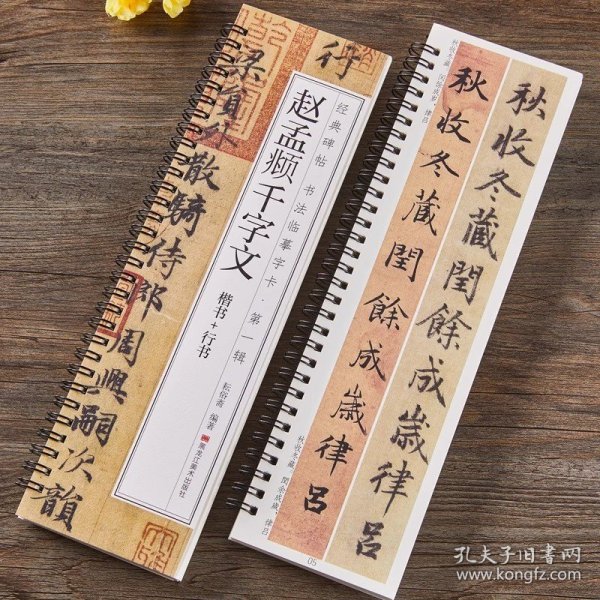 行
梁員外
散騎侍郎周興嗣次韻
经典碑帖 书法临摹字卡·第一辑
赵孟頫千字文
楷书+行书
耘俗斋 编著
黑龙江美术出版社
秋收冬藏 闰馀成岁 律吕
秋收冬藏閏餘成歲律呂
秋收冬藏閏餘成歲律呂
05
孔夫子旧书网
www.kongfz.com